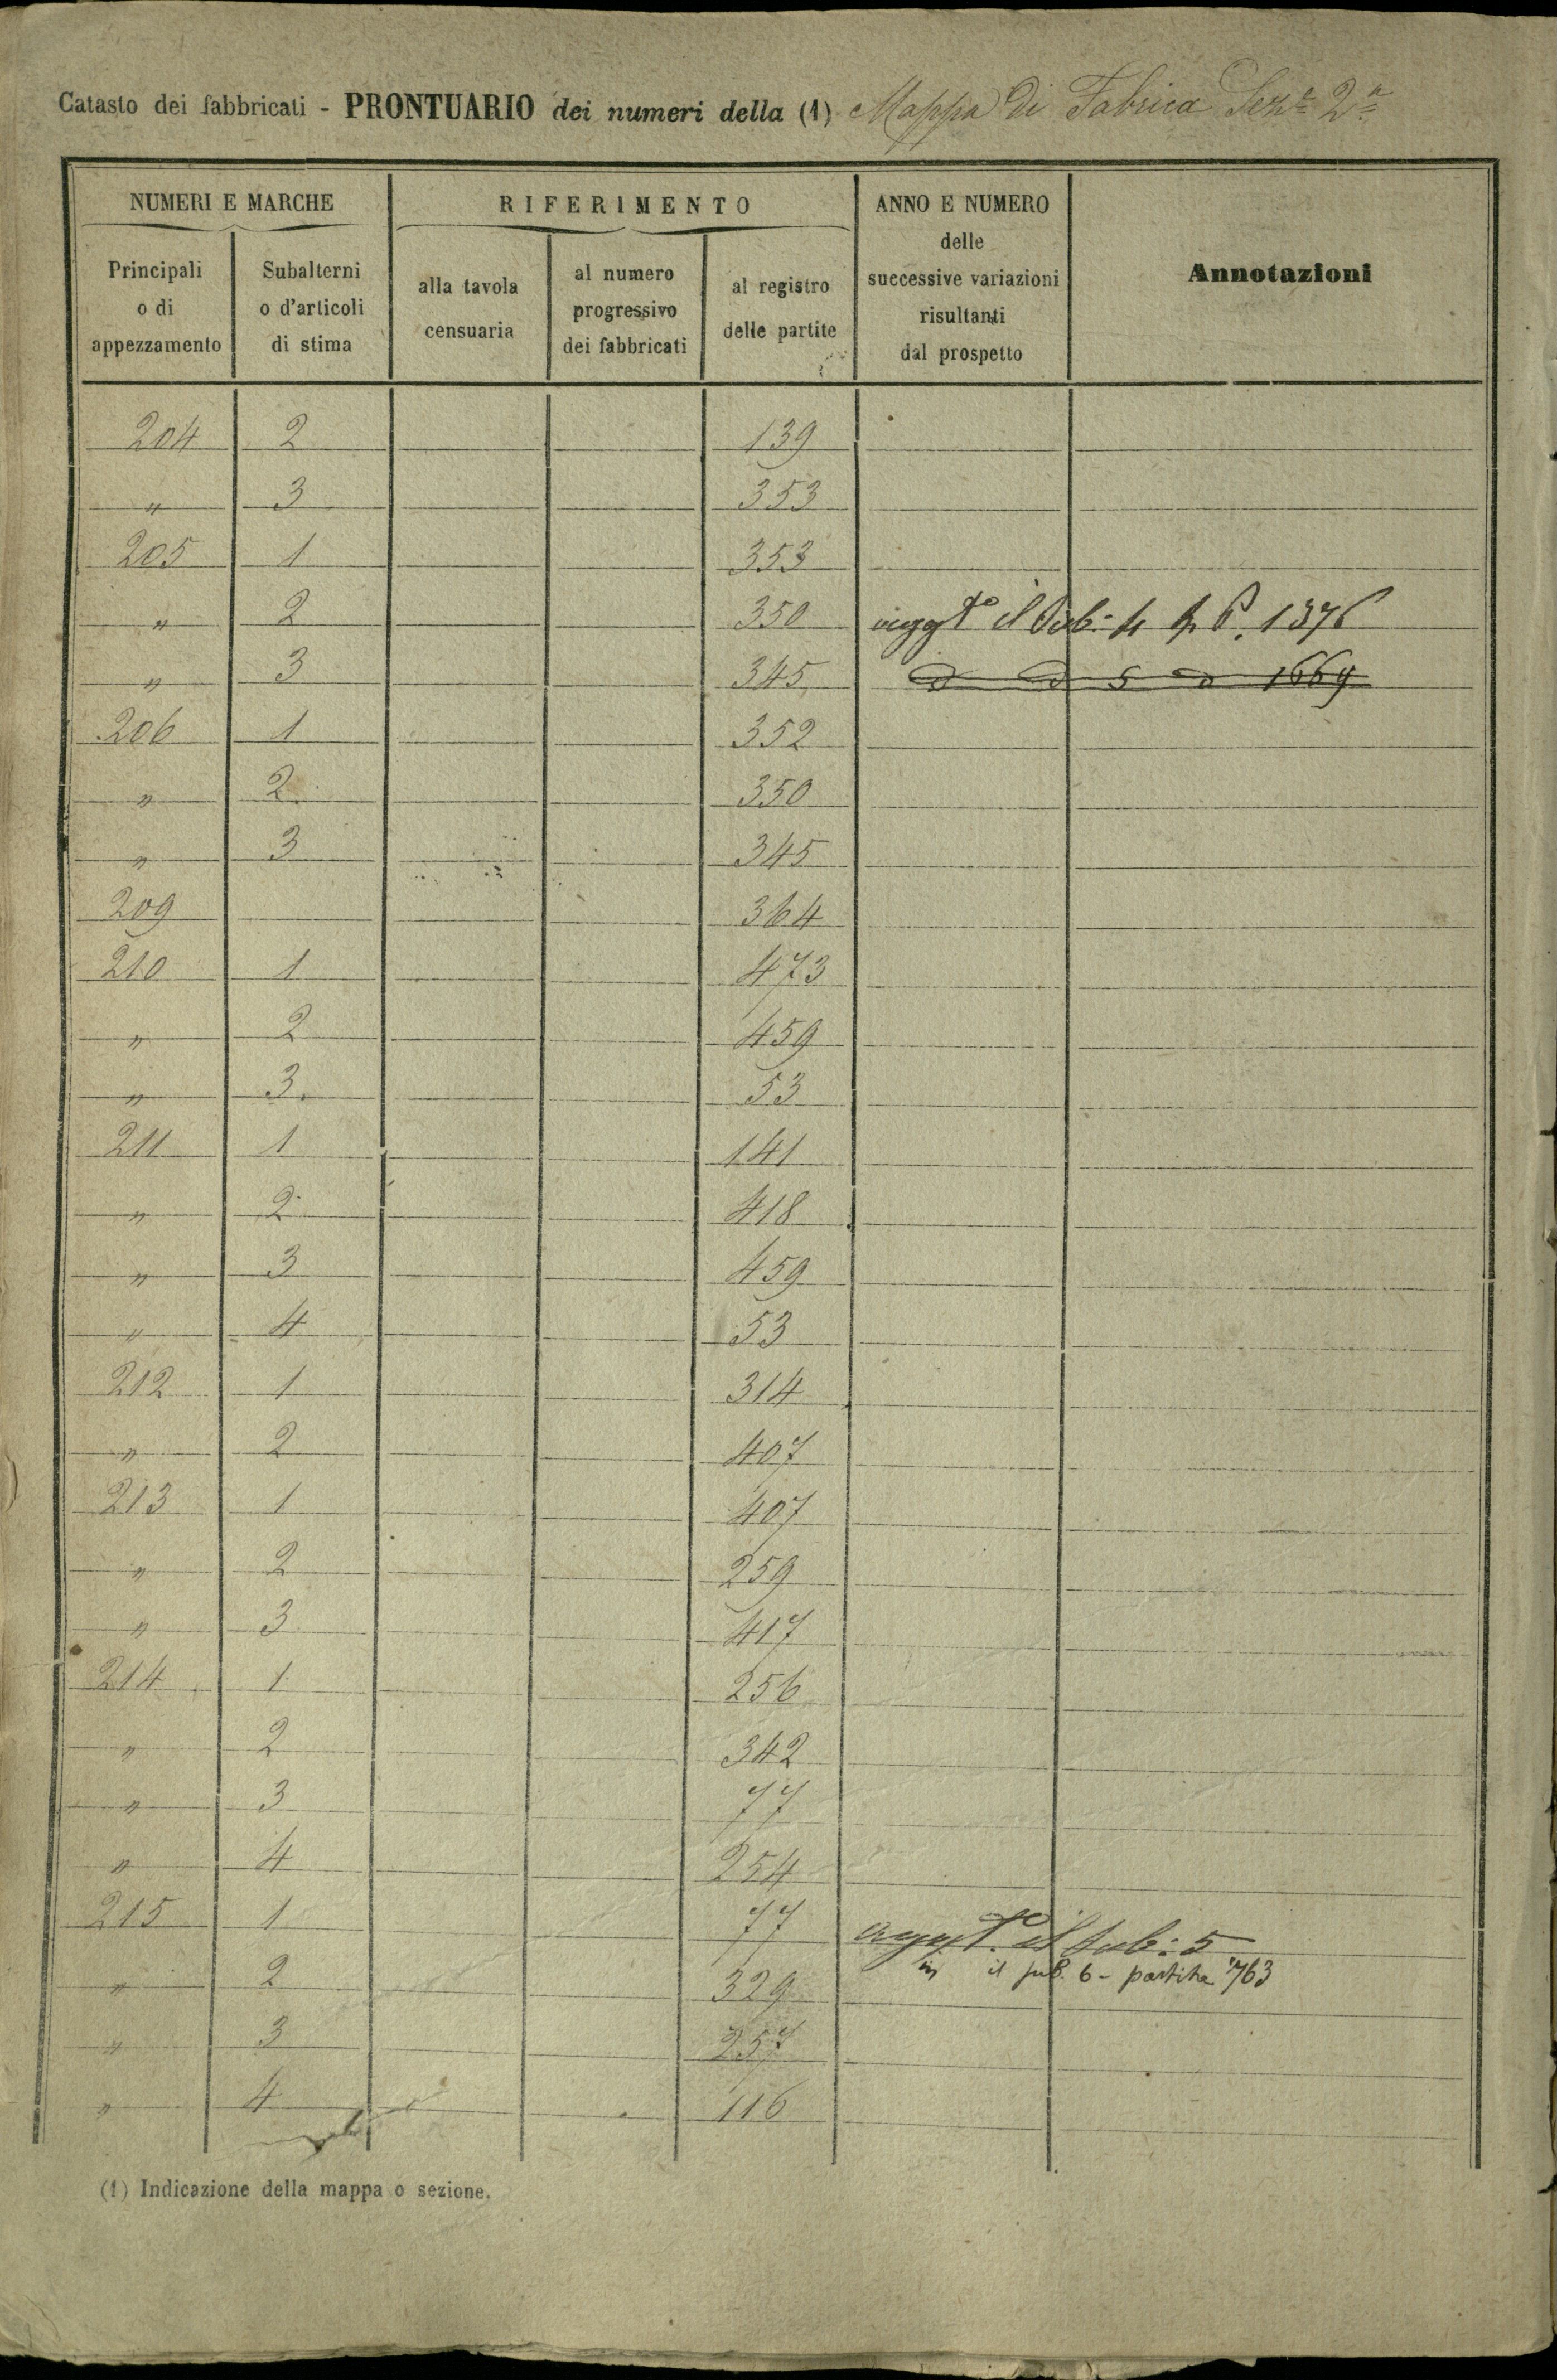 Catasto dei fabbricati - PRONTUARIO dei numeri della (1) Mappa di Fabrica Sezᵉ 2ª
NUMERI E MARCHE RIFERIMENTO ANNO E NUMERO delle successive variazioni risultanti dal prospetto Annotazioni
Principali o di appezzamento Subalterni o d'articoli di stima alla tavola censuaria al numero progressivo dei fabbricati al registro delle partite
204 2 139
" 3 353
205 1 353
" 2 350 aggtº il Sub: 4 P. 1376
" 3 345 5 1669
206 1 352
" 2 350
" 3 345
209 364
210 1 473
" 2 459
" 3 53
211 1 141
" 2 418
" 3 459
" 4 53
212 1 314
" 2 407
213 1 407
" 2 259
" 3 417
214 1 256
" 2 342
" 3 77
" 4 254
215 1 77 aggtº il sub: 5
" 2 329 il sub. 6 - partita 763
" 3 257
" 4 116
(1) Indicazione della mappa o sezione.